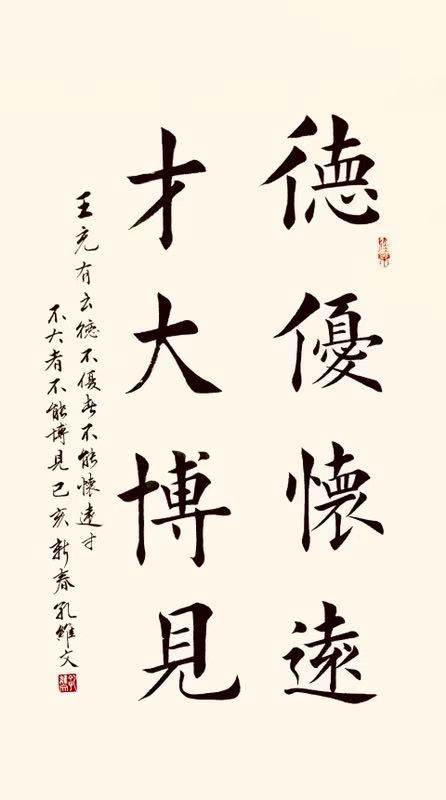 德優懷遠
才大博見
王充有云德不優者不能懷遠才
不大者不能博見己亥新春孔維文